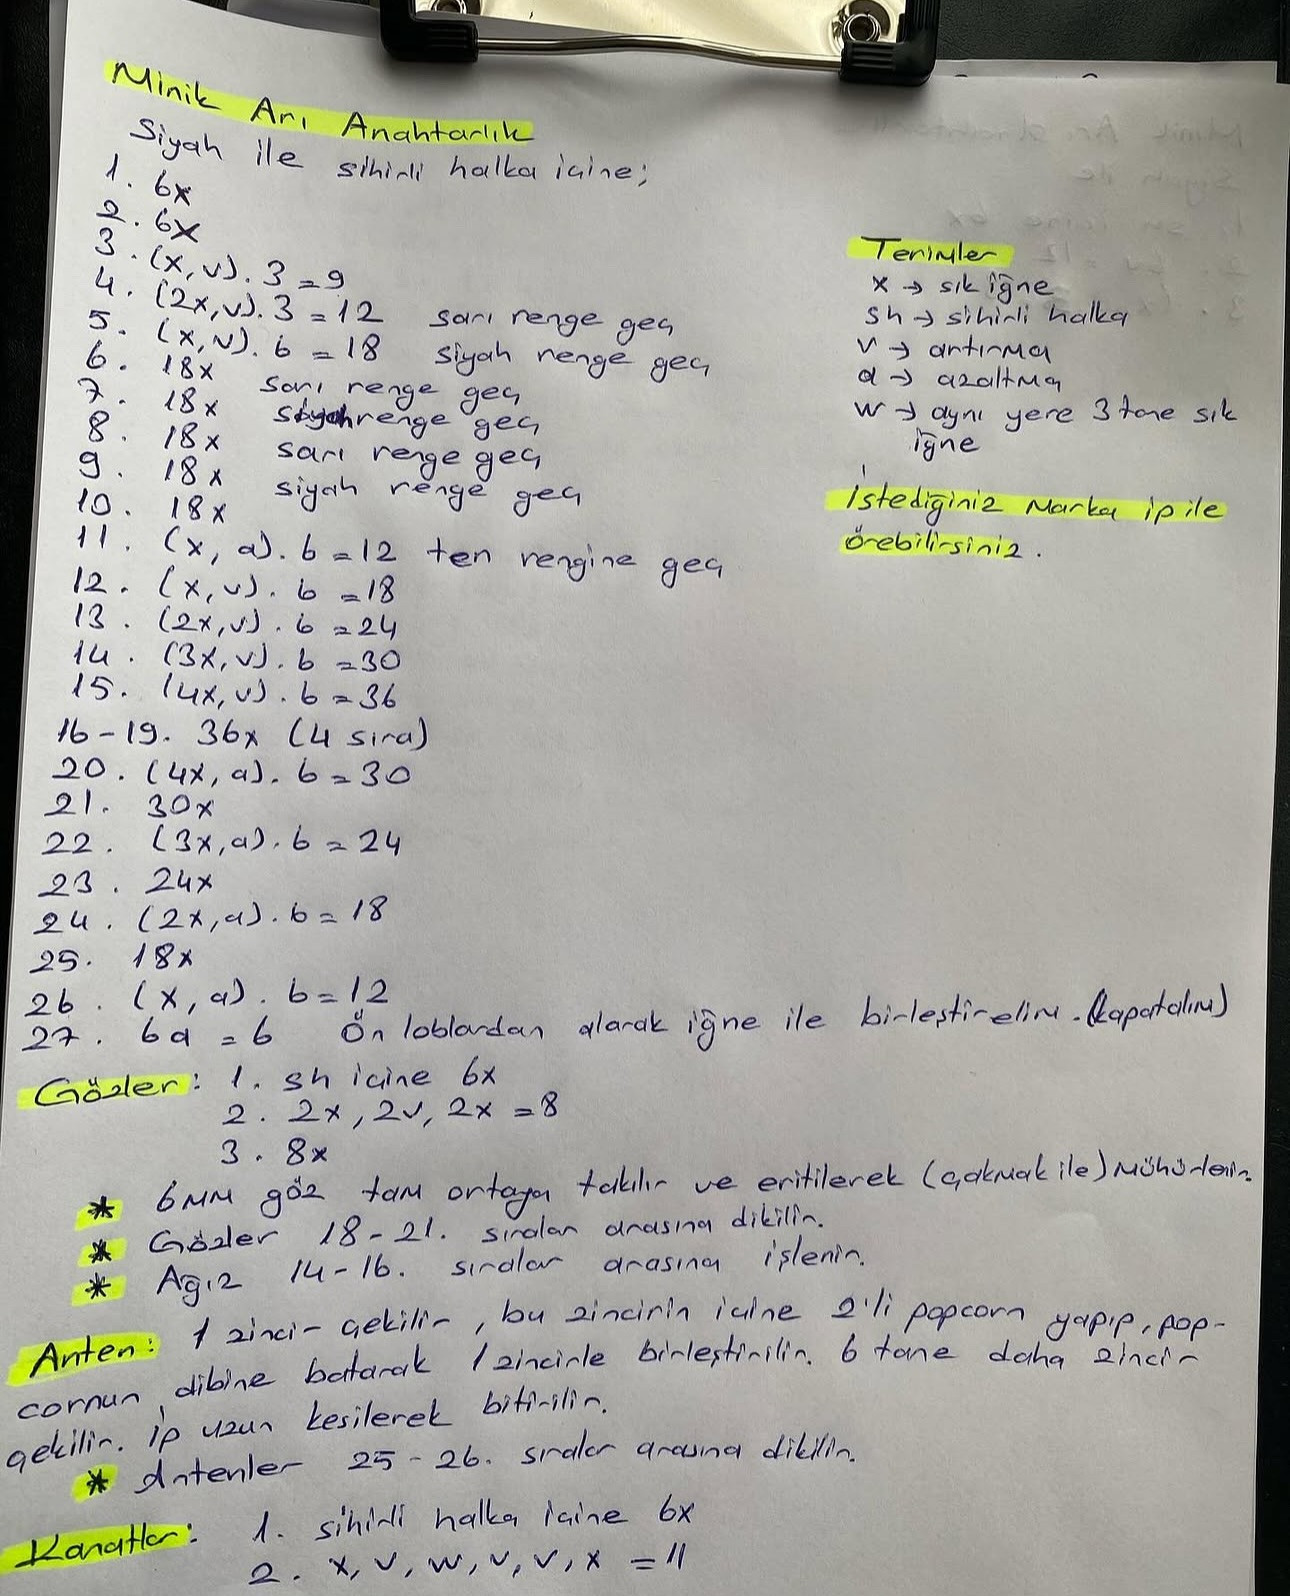 Minik Arı Anahtarlık
Siyah ile sihirli halka içine;
1. 6x
2. 6x
3. (x, v). 3 = 9
4. (2x, v). 3 = 12 sarı renge geç
5. (x, v). 6 = 18 siyah renge geç
6. 18x sarı renge geç
7. 18x siyah renge geç
8. 18x sarı renge geç
9. 18x siyah renge geç
10. 18x
11. (x, a). 6 = 12 ten rengine geç
12. (x, v). 6 = 18
13. (2x, v). 6 = 24
14. (3x, v). 6 = 30
15. (4x, v). 6 = 36
16-19. 36x (4 sıra)
20. (4x, a). 6 = 30
21. 30x
22. (3x, a). 6 = 24
23. 24x
24. (2x, a). 6 = 18
25. 18x
26. (x, a). 6 = 12
27. 6a = 6 Ön loblardan alarak iğne ile birleştirelim. (kapatalım)
Gözler: 1. sh içine 6x
2. 2x, 2v, 2x = 8
3. 8x
* 6mm göz tam ortaya takılır ve eritilerek (çakmak ile) mühürlenir.
* Gözler 18-21. sıralar arasına dikilir.
* Ağız 14-16. sıralar arasına işlenir.
Anten: 1 zincir çekilir, bu zincirin içine 2'li popcorn yapıp, pop-
cornun dibine batarak 1 zincirle birleştirilir. 6 tane daha zincir
çekilir. İp uzun kesilerek bitirilir.
* Antenler 25-26. sıralar arasına dikilir.
Kanatlar: 1. sihirli halka içine 6x
2. x, v, w, v, v, x = 11
Terimler
x → sık iğne
sh → sihirli halka
v → artırma
a → azaltma
w → aynı yere 3 tane sık
iğne
İstediğiniz marka ip ile
örebilirsiniz.